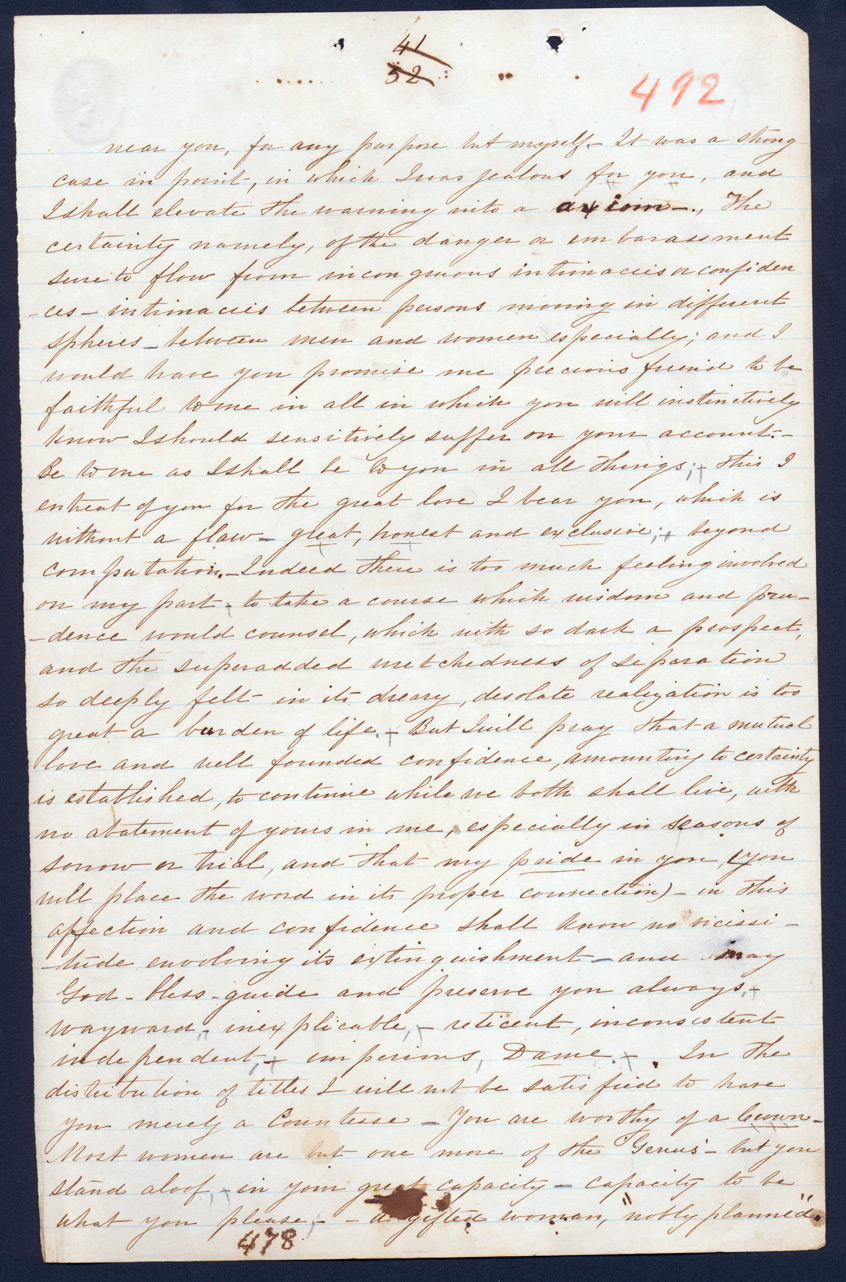 41
32
492
near you, for any purpose but myself – It was a strong
case in point, in which I was jealous for you, and
I shall elevate the warning into a axiom –, The
certainty namely, of the danger or embarassment
sure to flow from incongruous intimacies or confiden
-ces – intimacies between persons moving in different
spheres – between men and women especially; and I
would have you promise me precious friend to be
faithful to me in all in which you will instinctively
know I should sensitively suffer on your account. –
Be to me as I shall be to you in all things; + This I
entreat of you for the great love I bear you, which is
without a flaw – great, honest and exclusive; + beyond
computation. – Indeed there is too much feeling involved
on my part – to take a course which wisdom and pru-
-dence would counsel, which with so dark a prospect,
and the superadded wretchedness of separation
so deeply felt in its dreary, desolate realization is too
great a burden of life. + But I will pray that a mutual
love and well founded confidence, amounting to certainty
is established, to continue while we both shall live, with
no abatement of yours in me, especially in seasons of
sorrow or trial, and that my pride in you (you
will place the word in its proper connection) – in this
affection and confidence shall know no vicissi -
-tude envolving its extinguishment – and may
God – bless – guide and preserve you always, +
wayward, inexplicable, – reticent, inconsistent
independent, + imperious, Dame. + . In the
distribution of titles I will not be satisfied to have
you merely a Countesse – You are worthy of a Crown –
Most women are but one more of the "Genus" – but you
stand aloof, – in your great capacity – capacity to be
what you please; – a gifted woman, "nobly planned".
478